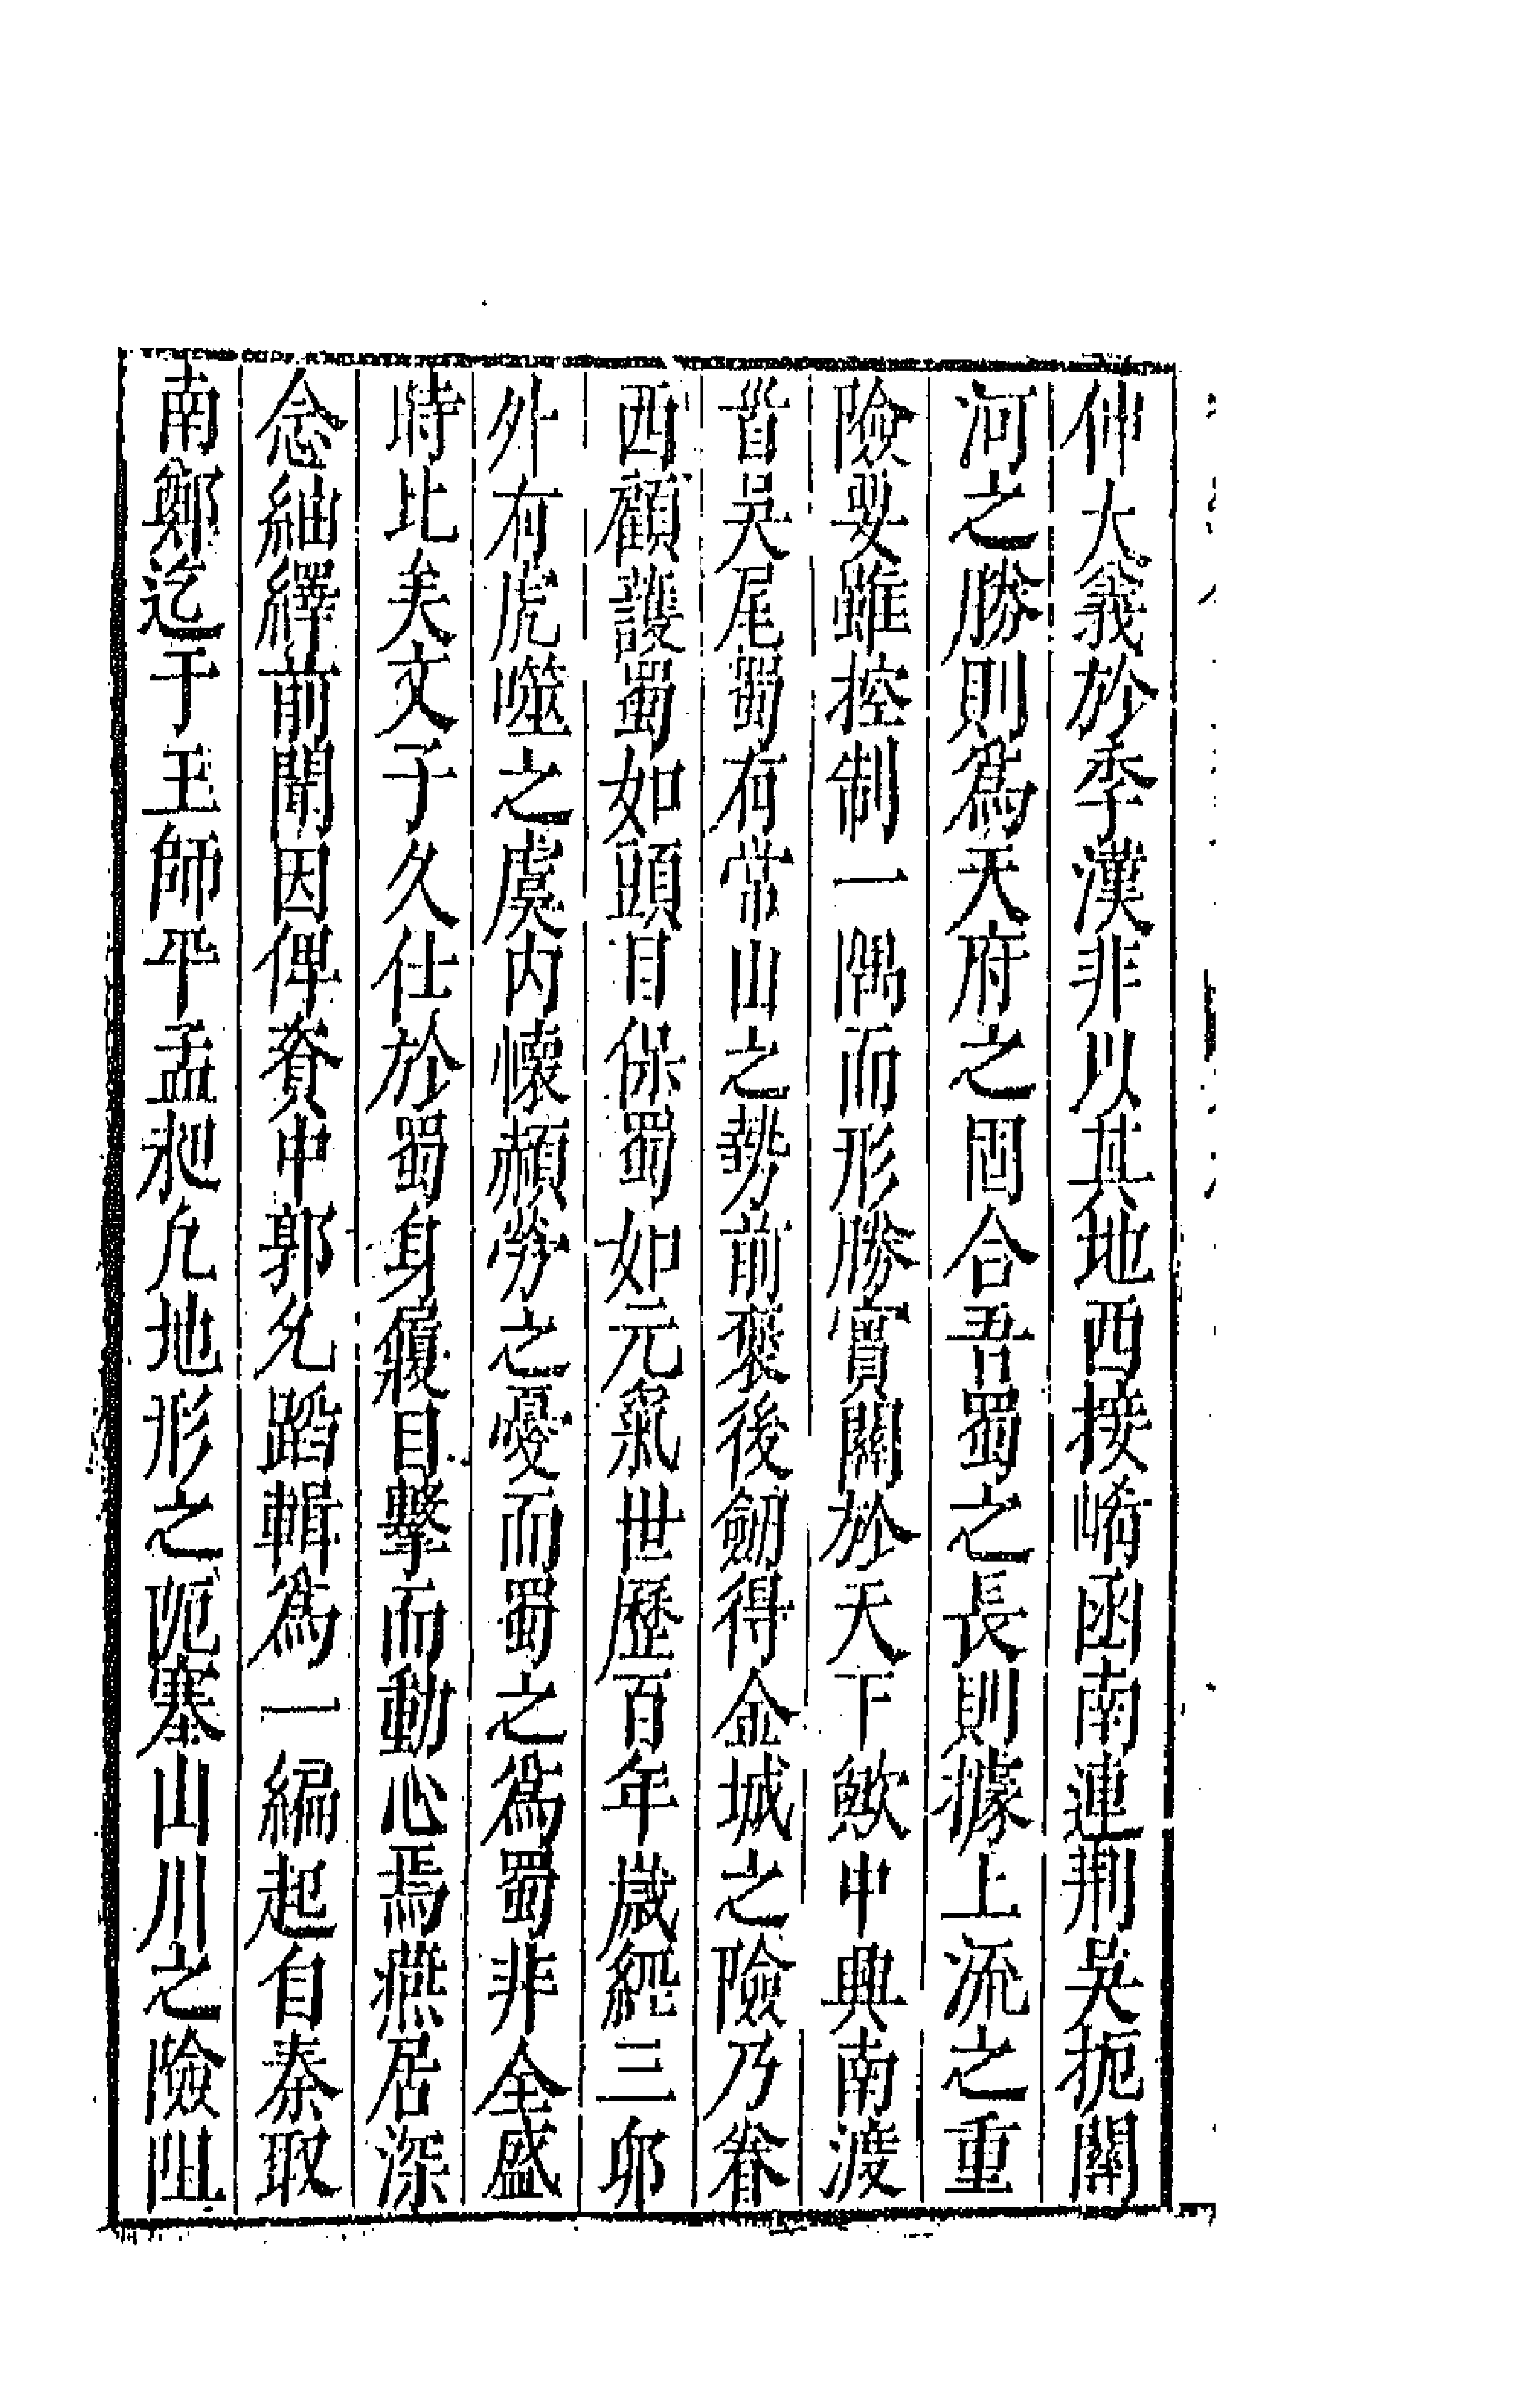 伸大義於季漢非以其地西接崤函南連荆吳扼關
河之勝則爲天府之固合吾蜀之長則據上流之重
險要雖控制一隅而形勝實關於天下歟中興南渡
首吳尾蜀有常山之勢前褒後劒得金城之險乃眷
西顧護蜀如頭目保蜀如元氣世歷百年歲經三卯
外有虎噬之虞内懷頳勞之憂而蜀之爲蜀非全盛
時比矣文子久仕於蜀身履目擊而動心焉燕居深
念紬繹前聞因俾資中郭允蹈輯爲一編起自秦取
南鄭迄于王師平孟昶凡地形之阨塞山川之險阻